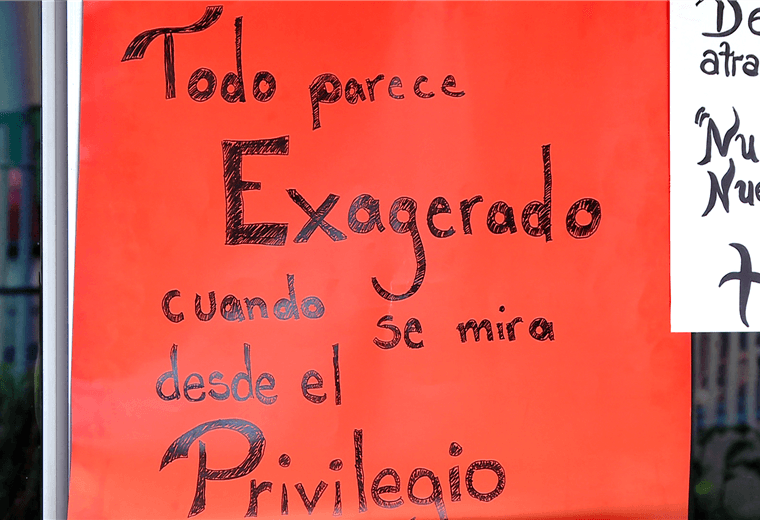 Todo parece
Exagerado
cuando se mira
desde el
Privilegio